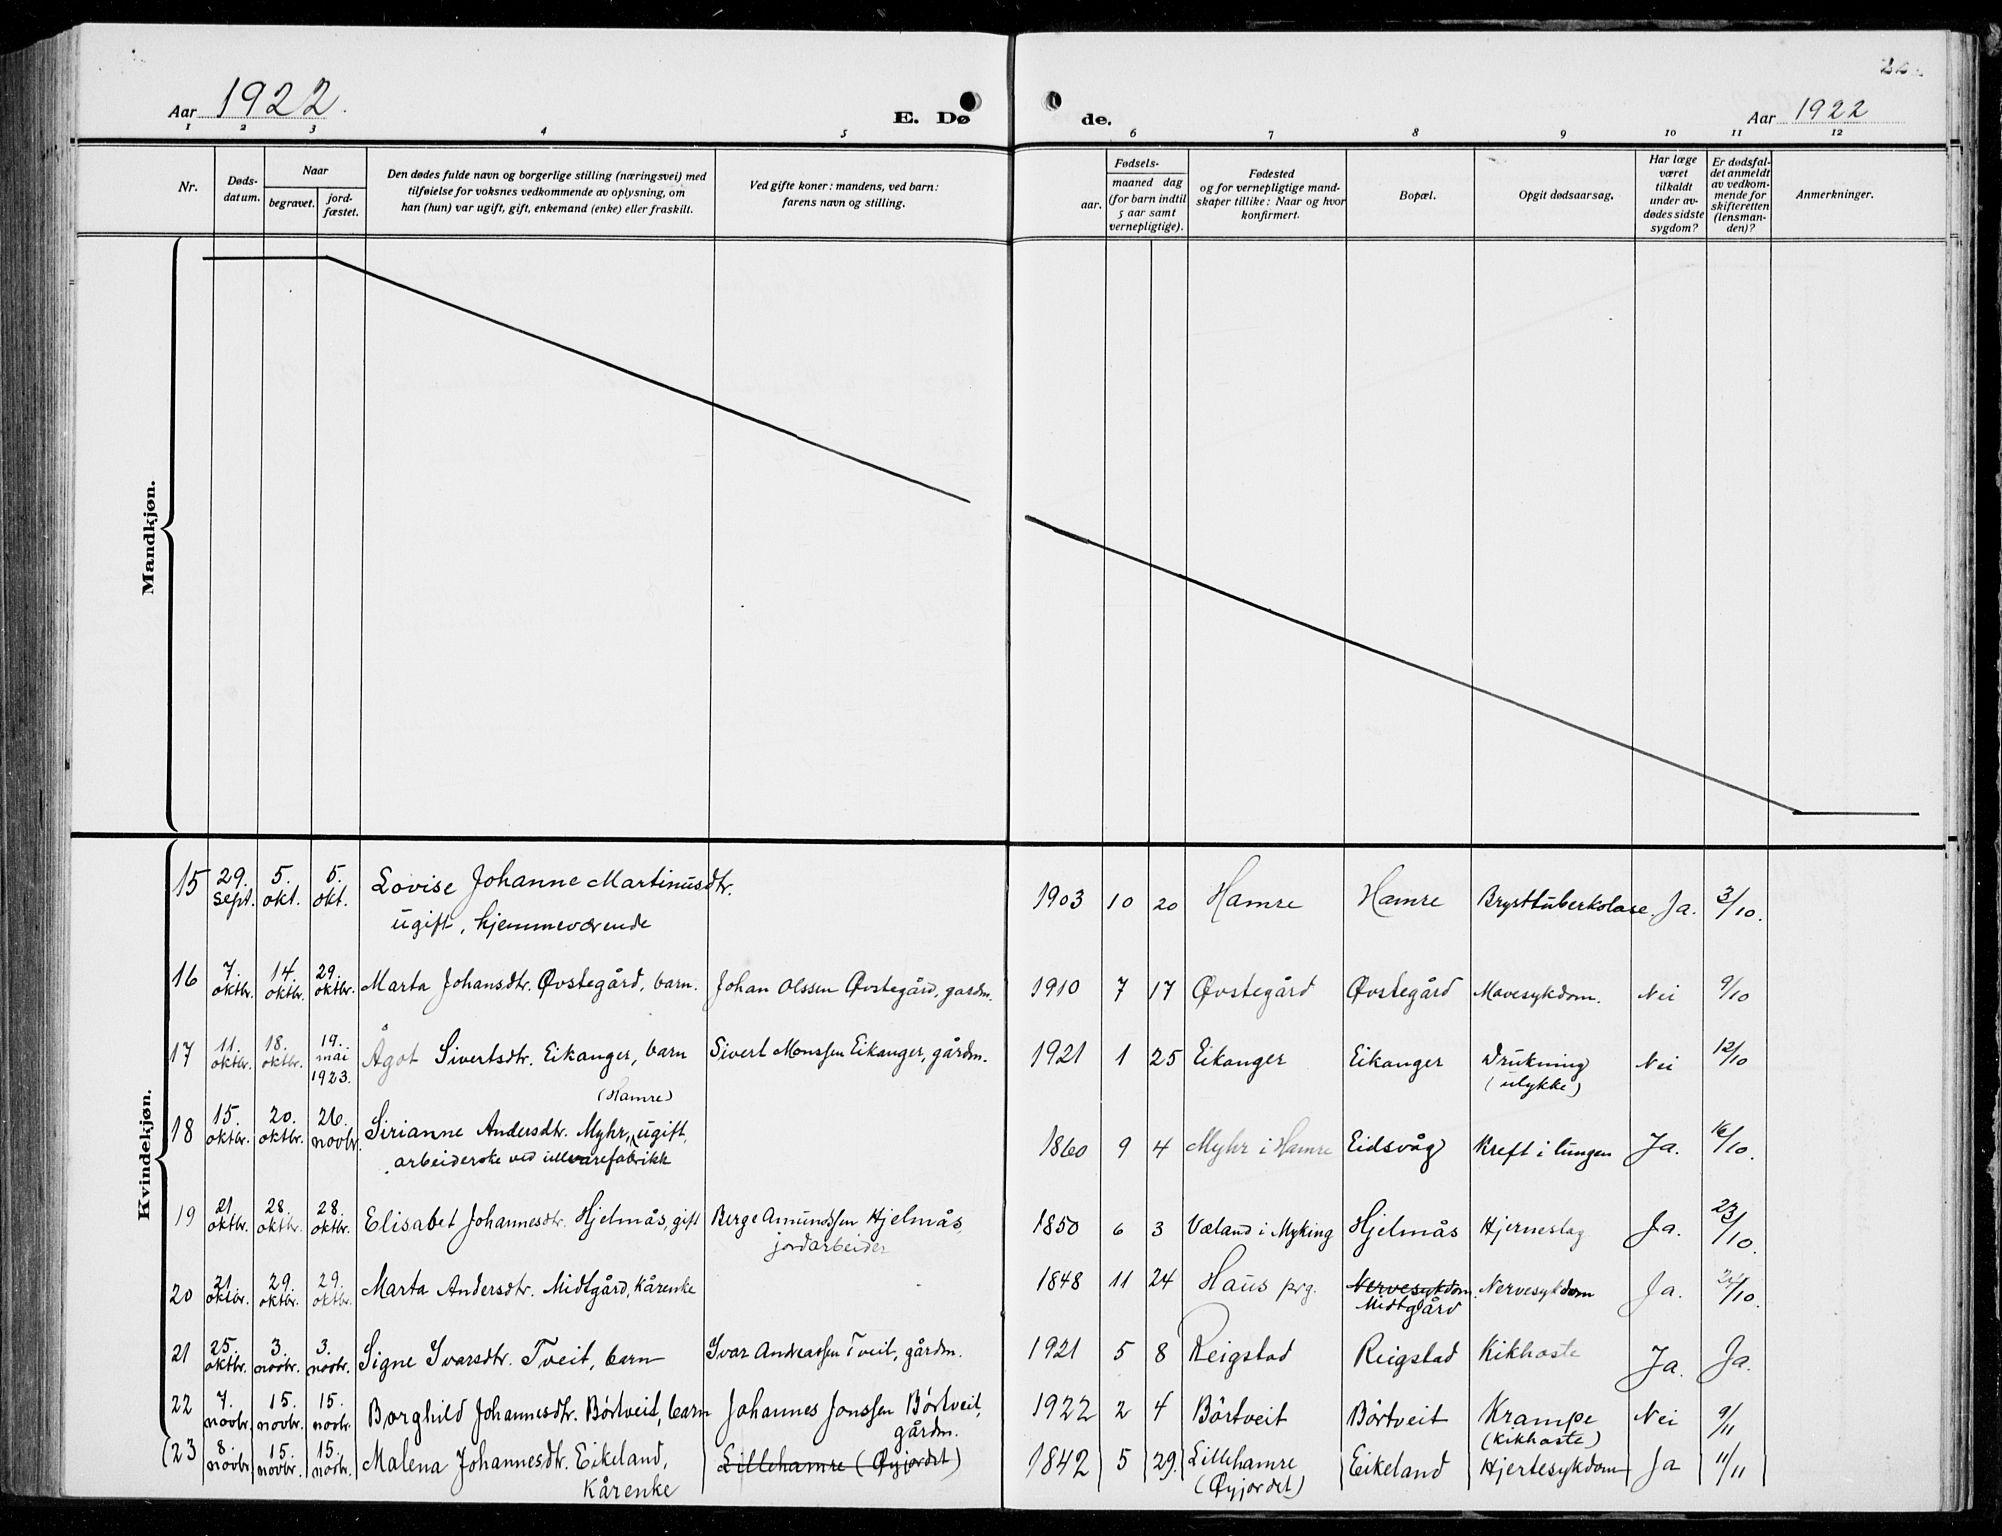 22
Aar 1922.
E. Dø
de.
Aar 1922
1 2 3 4 5 6 7 8 9 10 11 12
Nr.
Døds-
datum.
Naar
begravet.
jord-
fæstet.
Den dødes fulde navn og borgerlige stilling (næringsvei) med
tilføielse for voksnes vedkommende av oplysning, om
han (hun) var ugift, gift, enkemand (enke) eller fraskilt.
Ved gifte koner: mandens, ved barn:
farens navn og stilling.
Fødsels-
aar.
maaned dag
(for barn indtil
5 aar samt
vernepligtige).
Fødested
og for vernepligtige mand-
skaper tillike: Naar og hvor
konfirmert.
Bopæl.
Opgit dødsaarsag.
Har læge
været
tilkaldt
under av-
dødes sidste
sygdom?
Er dødsfal-
det anmeldt
av vedkom-
mende for
skifteretten
(lensman-
den)?
Anmerkninger.
Mandkjøn.
Kvindekjøn.
15 29. sept. 5. okt. 5. okt. Lovise Johanne Martinusdtr. 1903 10 20 Hamre Hamre Brysttuberkolose. Ja. 3/10.
ugift, hjemmeværende
16 7. oktbr. 14. oktbr. 29. oktbr. Marta Johansdtr. Øvstegård, barn. Johan Olssen Øvstegård, gardm. 1910 7 17 Øvstegård Øvstegård Mavesykdom. Nei 9/10
17 11. oktbr. 18. oktbr. 19. mai 1923. Ågot Sivertsdtr. Eikanger, barn Sivert Monssen Eikanger, gårdm. 1921 1 25 Eikanger Eikanger Drukning Nei 12/10
(ulykke)
(Hamre)
18 15. oktbr. 20. oktbr. 26. novbr. Sirianne Andersdtr. Myhr, ugift, 1860 9 4 Myhr i Hamre Eidsvåg Kreft i lungen Ja. 16/10.
arbeiderske ved ullvarefabrikk
19 21. oktbr. 28. oktbr. 28. oktbr. Elisabet Johannesdtr. Hjelmås, gift Berge Amundssen Hjelmås, 1850 6 3 Væland i Myking Hjelmås Hjerneslag Ja. 23/10.
jordarbeider
20 21. oktbr. 29. oktbr. 29. oktbr. Marta Andersdtr. Midtgård, Kårenke 1848 11 24 Haus prg. Nervesykdom. Nervesykdom Ja.
Midtgård
21 25. oktbr. 3. novbr. 3. novbr. Signe Ivarsdtr. Tveit, barn Ivar Andreassen Tveit, gårdm. 1921 5 8 Reigstad Reigstad Kikhoste Ja. Ja.
22 7. novbr. 15. novbr. 15. novbr. Borghild Johannesdtr. Börtveit, barn Johannes Jonssen Börtveit, 1922 2 4 Börtveit Börtveit Krampe Nei 9/11
gårdm. (kikhoste)
(23 8. novbr. 15. novbr. 15. novbr. Malena Johannesdtr. Eikeland, Lillehamre (Øyjordet) 1842 5 29. Lillehamre Eikeland Hjertesykdom Ja 11/11
Kårenke (Øyjordet)